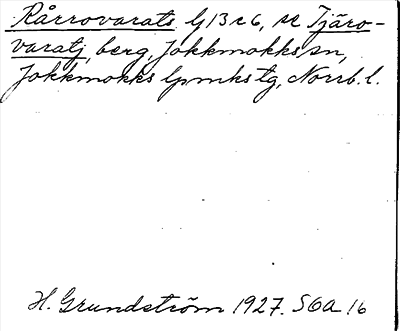 Rårrovarats. G 13 r 6, se Tjåro-
varatj, berg, Jokkmokks sn,
Jokkmokks lpmkstg, Norrb. l.
H. Grundström 1927. SOA 16